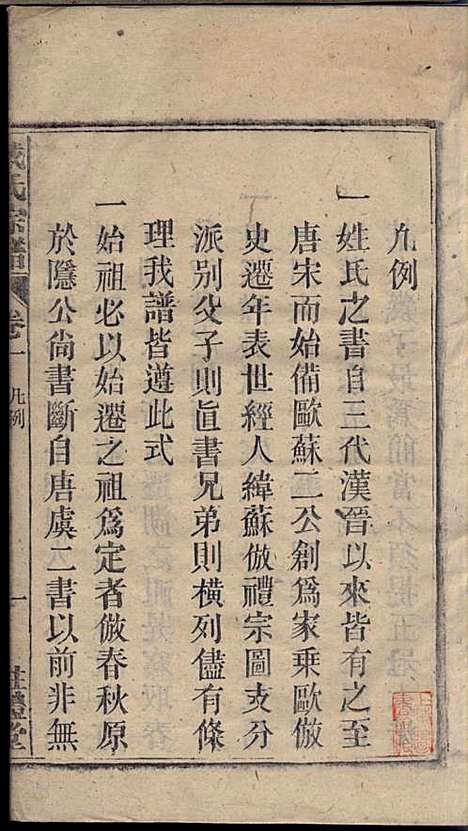 凡例
一姓氏之書自三代漢晉以來皆有之至
唐宋而始備歐蘇二公創爲家乘歐倣
史遷年表世經人緯蘇倣禮宗圖支分
派別父子則直書兄弟則橫列儘有條
理我譜皆遵此式
一始祖必以始遷之祖爲定者倣春秋原
於隱公尙書斷自唐虞二書以前非無
氏宗譜 卷一 凡例 一 禮堂